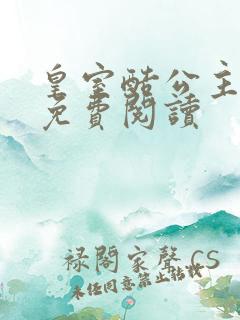 皇室酷公主
免費閱讀
祿閣家聲 CS
未任同意禁止轉載